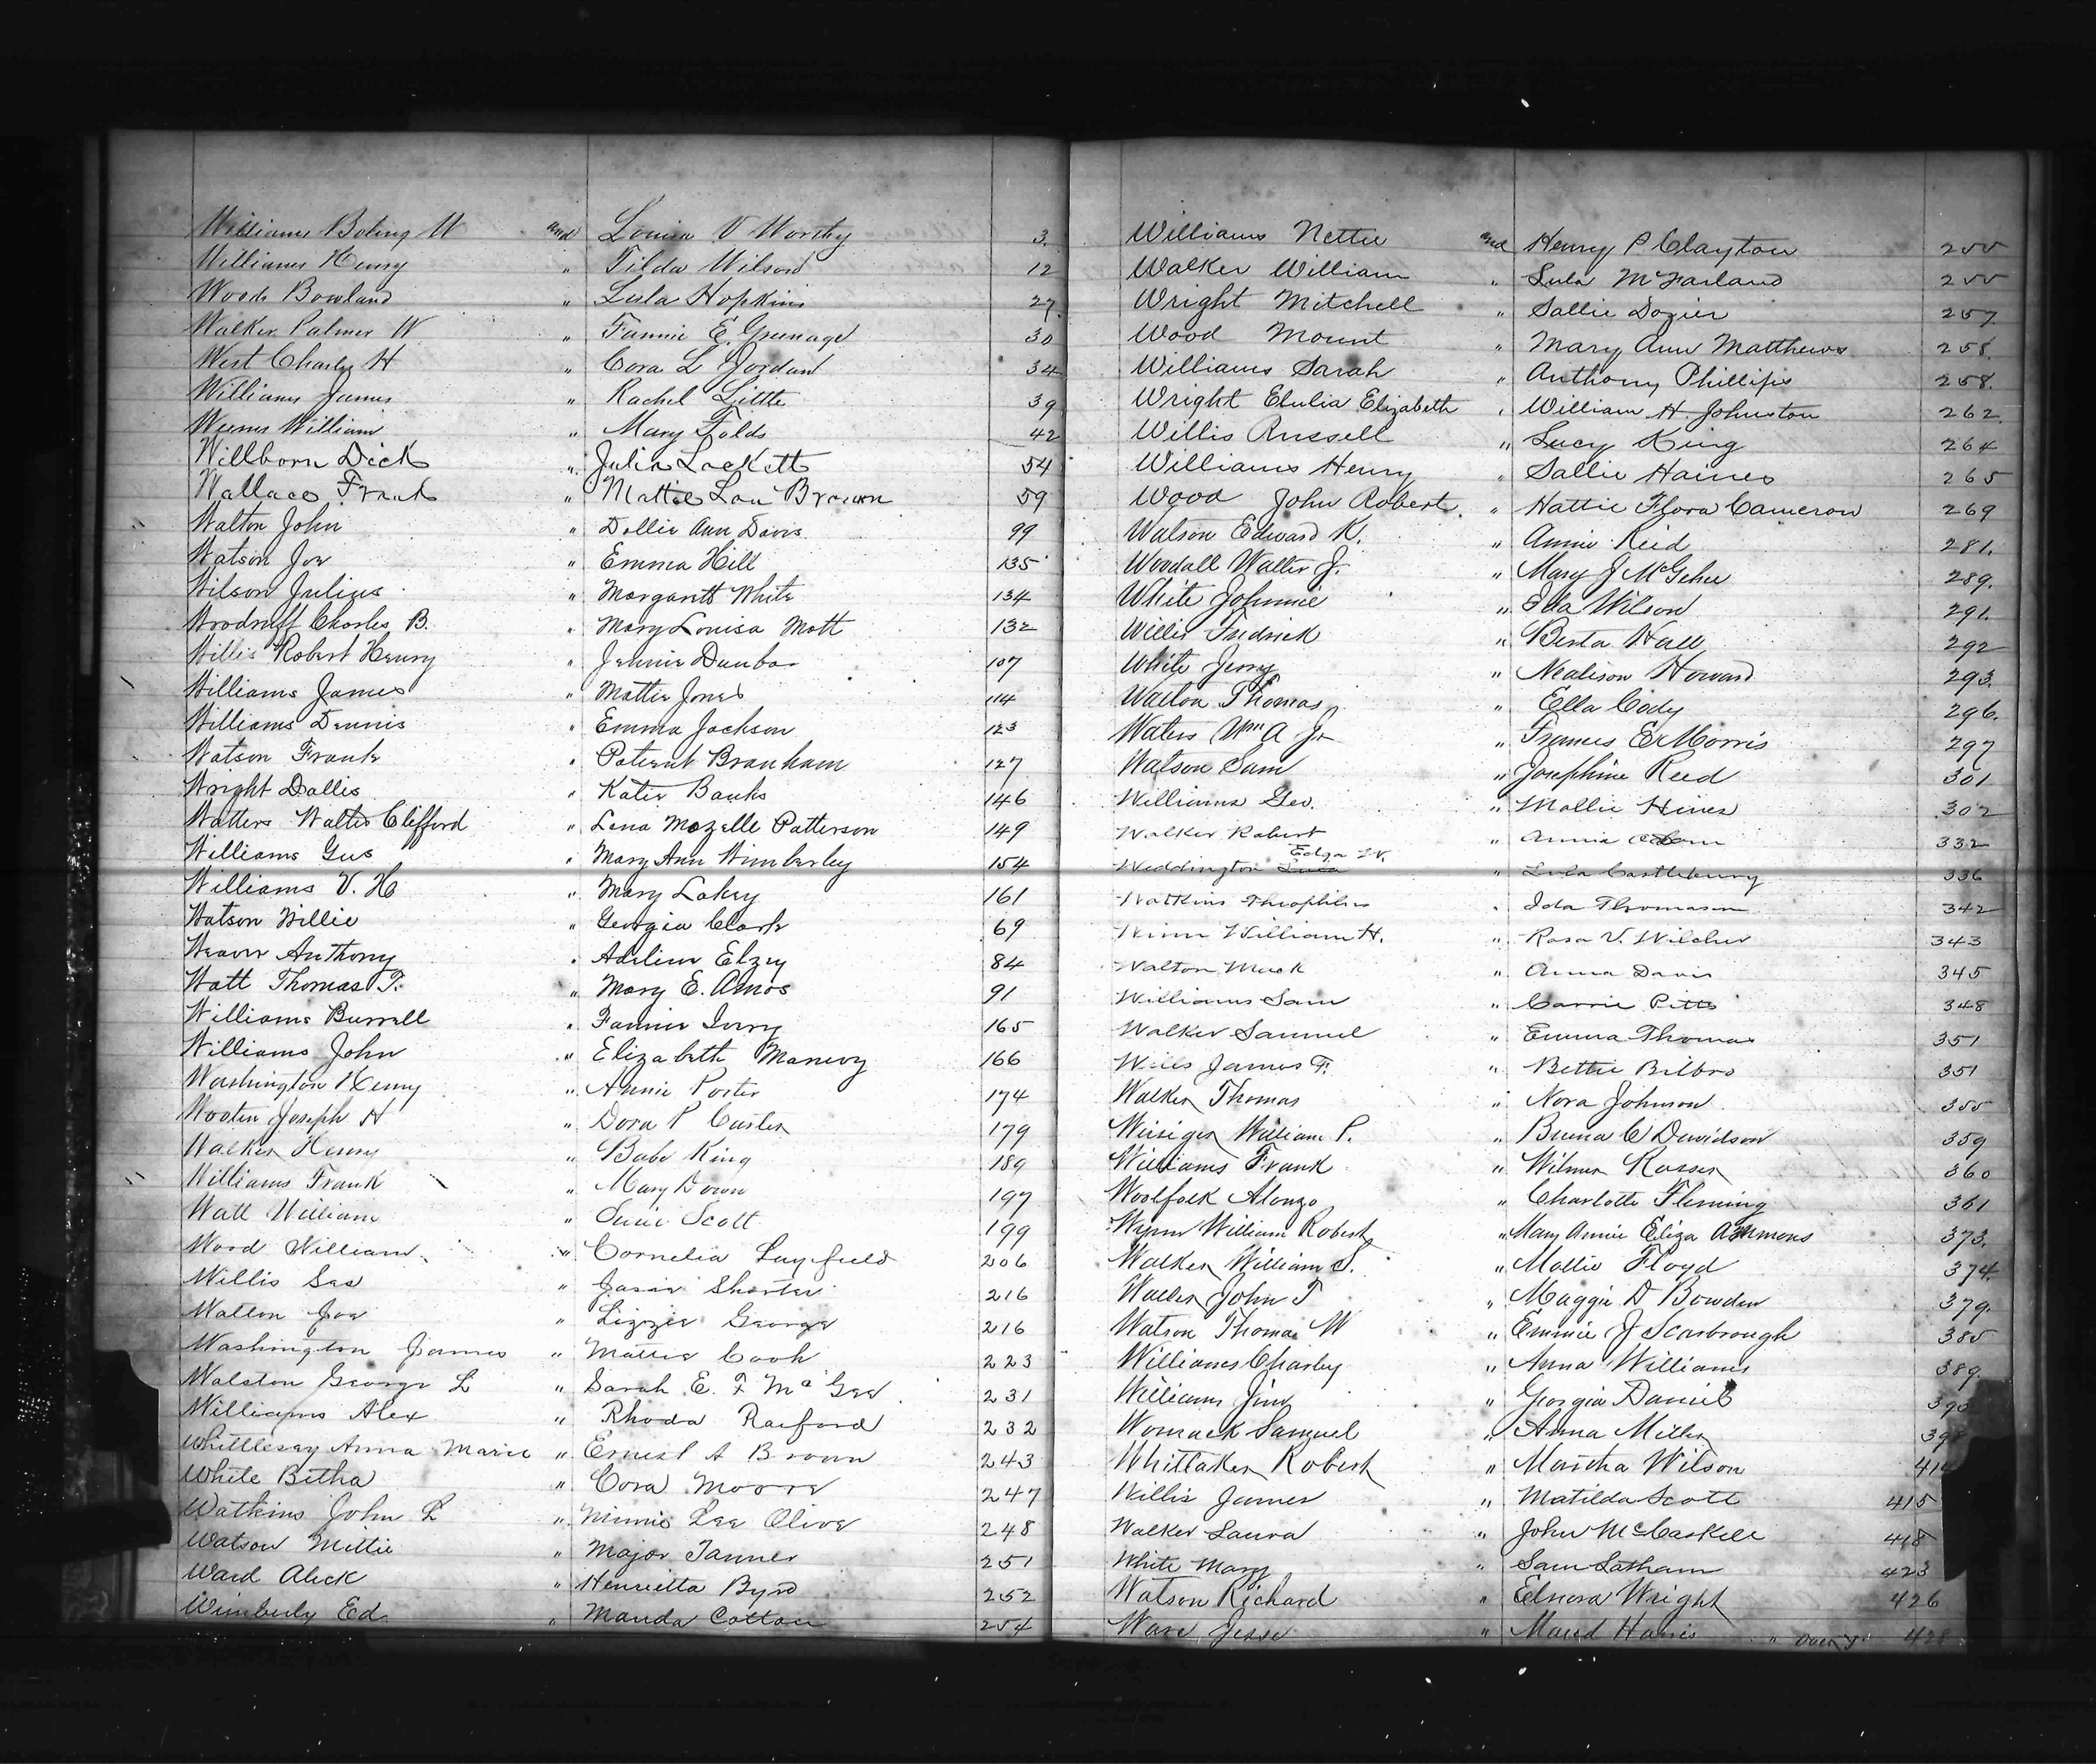 Williams Boling W and Louisa V Worthy 3.
Williams Henry " Tilda Wilson 12
Woods Bowland " Lula Hopkins 27.
Walker Palmer W " Fannie E. Greenage 30
West Charley H " Cora L Jordan 34
Williams James " Rachel Little 39
Weems William " Mary Folds 42
Willborn Dick " Julia Lockett 54
Wallace Frank " Mattie Lou Brown 59
Walton John " Dollie Ann Davis 99
Watson Joe " Emma Hill 135
Wilson Julius " Margarett White 134
Woodruff Charles B. " Mary Louisa Mott 132
Willis Robert Henry " Jennie Dunbar 107
Williams James " Mattie Jones 114
Williams Dennis " Emma Jackson 123
Watson Frank " Patient Branham 127
Wright Dallis " Katie Banks 146
Watters Walter Clifford " Lena Mozelle Patterson 149
Williams Gus " Mary Ann Wimberley 154
Williams V. H " Mary Lakey 161
Watson Willie " Georgia Clark 69
Weaver Anthony " Adeline Elzey 84
Watt Thomas T. " Mary E. Amos 91
Williams Burrell " Fannie Ivery 165
Williams John " Elizabeth 166
Washington Henry " Annie Porter 174
Wooten Joseph H " Dora P Carter 179
Walker Henry " Babe King 189
Williams Frank " Mary Down 197
Watt William " Susie Scott 199
Wood William " Cornelia Layfield 206
Willis Sas " Josie Shorter 216
Walton Joe " Lizzie George 216
Washington James " Mattie Cook 223
Walston George L " Sarah E. F McGee 231
Williams Alex " Rhoda Raiford 232
Whittlesey Anna Marie " Ernest A Brown 243
White Bitha " Cora Moore 247
Watkins John L " Minnie Lee Olive 248
Watson Mittie " Major Tanner 251
Ward Aleck " Henrietta Byrd 252
Wimberly Ed. " Manda Cotton 254
Williams Nettie and Henry P. Clayton 255
Walker William " Lula McFarland 255
Wright Mitchell " Sallie Dozier 257
Wood Mount " Mary Ann Matthews 258
Williams Sarah " Anthony Phillips 258.
Wright Elulia Elizabeth " William H. Johnston 262.
Willis Russell " Lucy King 264
Williams Henry " Sallie Haines 265
Wood John Robert. " Hattie Flora Cameron 269
Watson Edward K. " Annie Reid 281.
Woodall Walter J. " Mary J McGehee 289.
White Johnnie " Ida Wilson 291.
Willis Fredrick " Berta Hall 292
White Jerry " Nealison Howard 293.
Walton Thomas " Ella Cody 296.
Waters Wm A Jr " Frances E Morris 297
Watson Sam " Josephine Reed 301
Williams Geo. " Mollie Hines 302
Walker Robert " Annia 332
Weddington Edga W. " Lula Castlebury 336
Watkins Theophilus " Ida Thomason 342
Winn William H. " Rosa V. Wilcher 343
Walton Muck " Anna Davis 345
Williams Sam " Carrie Pitts 348
Walker Samuel " Emma Thomas 351
Wills James F. " Bettie Bilbro 351
Walker Thomas " Nora Johnson 355
William P. " C Davidson 359
Williams Frank " Wilmer Rosser 360
Woolfolk Alonzo " Charlotte Fleming 361
Wynn William Robert " Mary Annie Eliza Ammons 373.
Walker William S. " Mollie Floyd 374.
Waller John T " Maggie D Bowden 379.
Watson Thomas W " Emmie J Scarbrough 385
Williams Charley " Anna Williams 389.
Williams Jim " Georgia Daniel
Womack Samuel " Anna Miller
Whittaker Robert " Martha Wilson 414
Willis James " Matilda Scott 415
Walker Laura " John McCaskill 418
White Mary " Sam Latham 423
Watson Richard " Elnora Wright 426
Ware Jesse " Maud Harris " Over 428